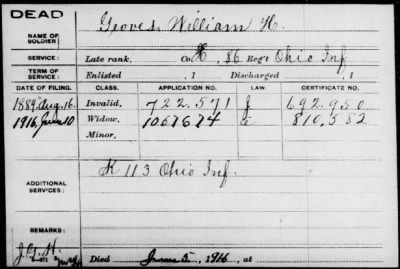 DEAD
NAME OF SOLDIER: Groves, William H.
SERVICE: Late rank, Co. H, 86 Reg't Ohio Inf.
TERM OF SERVICE: Enlisted , 1 Discharged , 1
DATE OF FILING. CLASS. APPLICATION NO. LAW. CERTIFICATE NO.
1889, Aug. 16. Invalid, 722.571 692.950
1916, June 10 Widow, 1067674 G 810.582
Minor,
ADDITIONAL SERVICES: K 113 Ohio Inf.
REMARKS:
Died June 5, 1916, at